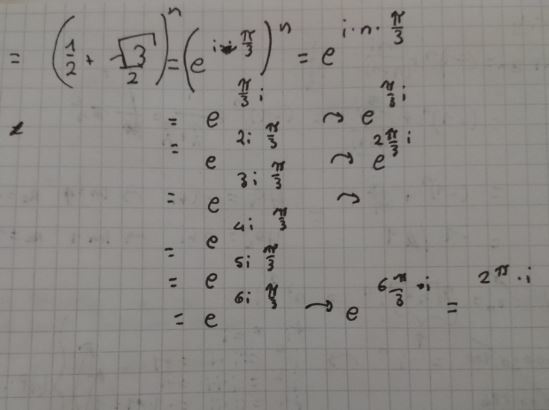 = (1/2 + √3/2)^n = (e^{i·π/3})^n = e^{i·n·π/3}
= e^{π/3 i} → e^{π/3 i}
= e^{2i π/3} → e^{2π/3 i}
= e^{3i π/3} →
= e^{4i π/3}
= e^{5i π/3}
= e^{6i π/3} → e^{6π/3·i} = 2π·i